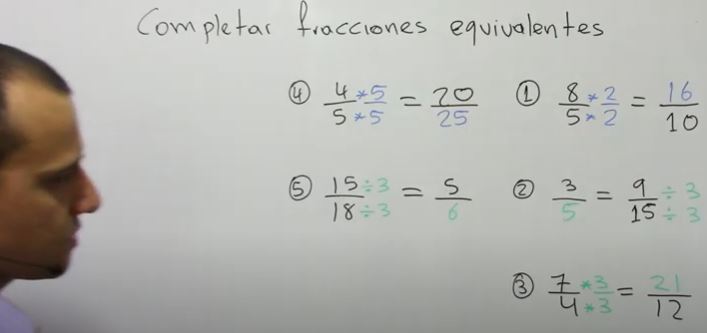 Completar fracciones equivalentes
④ 4/5 *5/*5 = 20/25
① 8/5 *2/*2 = 16/10
⑤ 15/18 ÷3/÷3 = 5/6
② 3/5 = 9/15 ÷3/÷3
③ 7/4 *3/*3 = 21/12